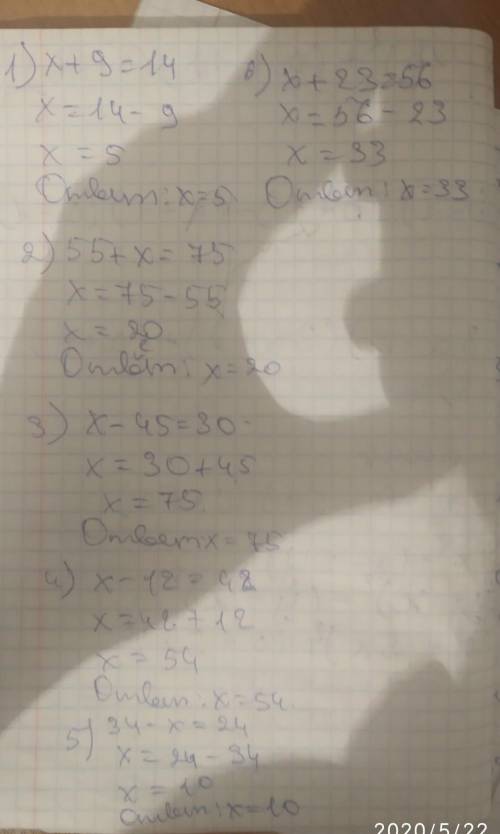 1) x + 9 = 14
x = 14 - 9
x = 5
Ответ: x = 5
2) 55 + x = 75
x = 75 - 55
x = 20
Ответ: x = 20
3) x - 45 = 30
x = 30 + 45
x = 75
Ответ x = 75
4) x - 12 = 42
x = 42 + 12
x = 54
Ответ: x = 54.
5) 34 - x = 24
x = 24 - 34
x = 10
Ответ: x = 10
6) x + 23 = 56
x = 56 - 23
x = 33
Ответ: x = 33
2020/5/22